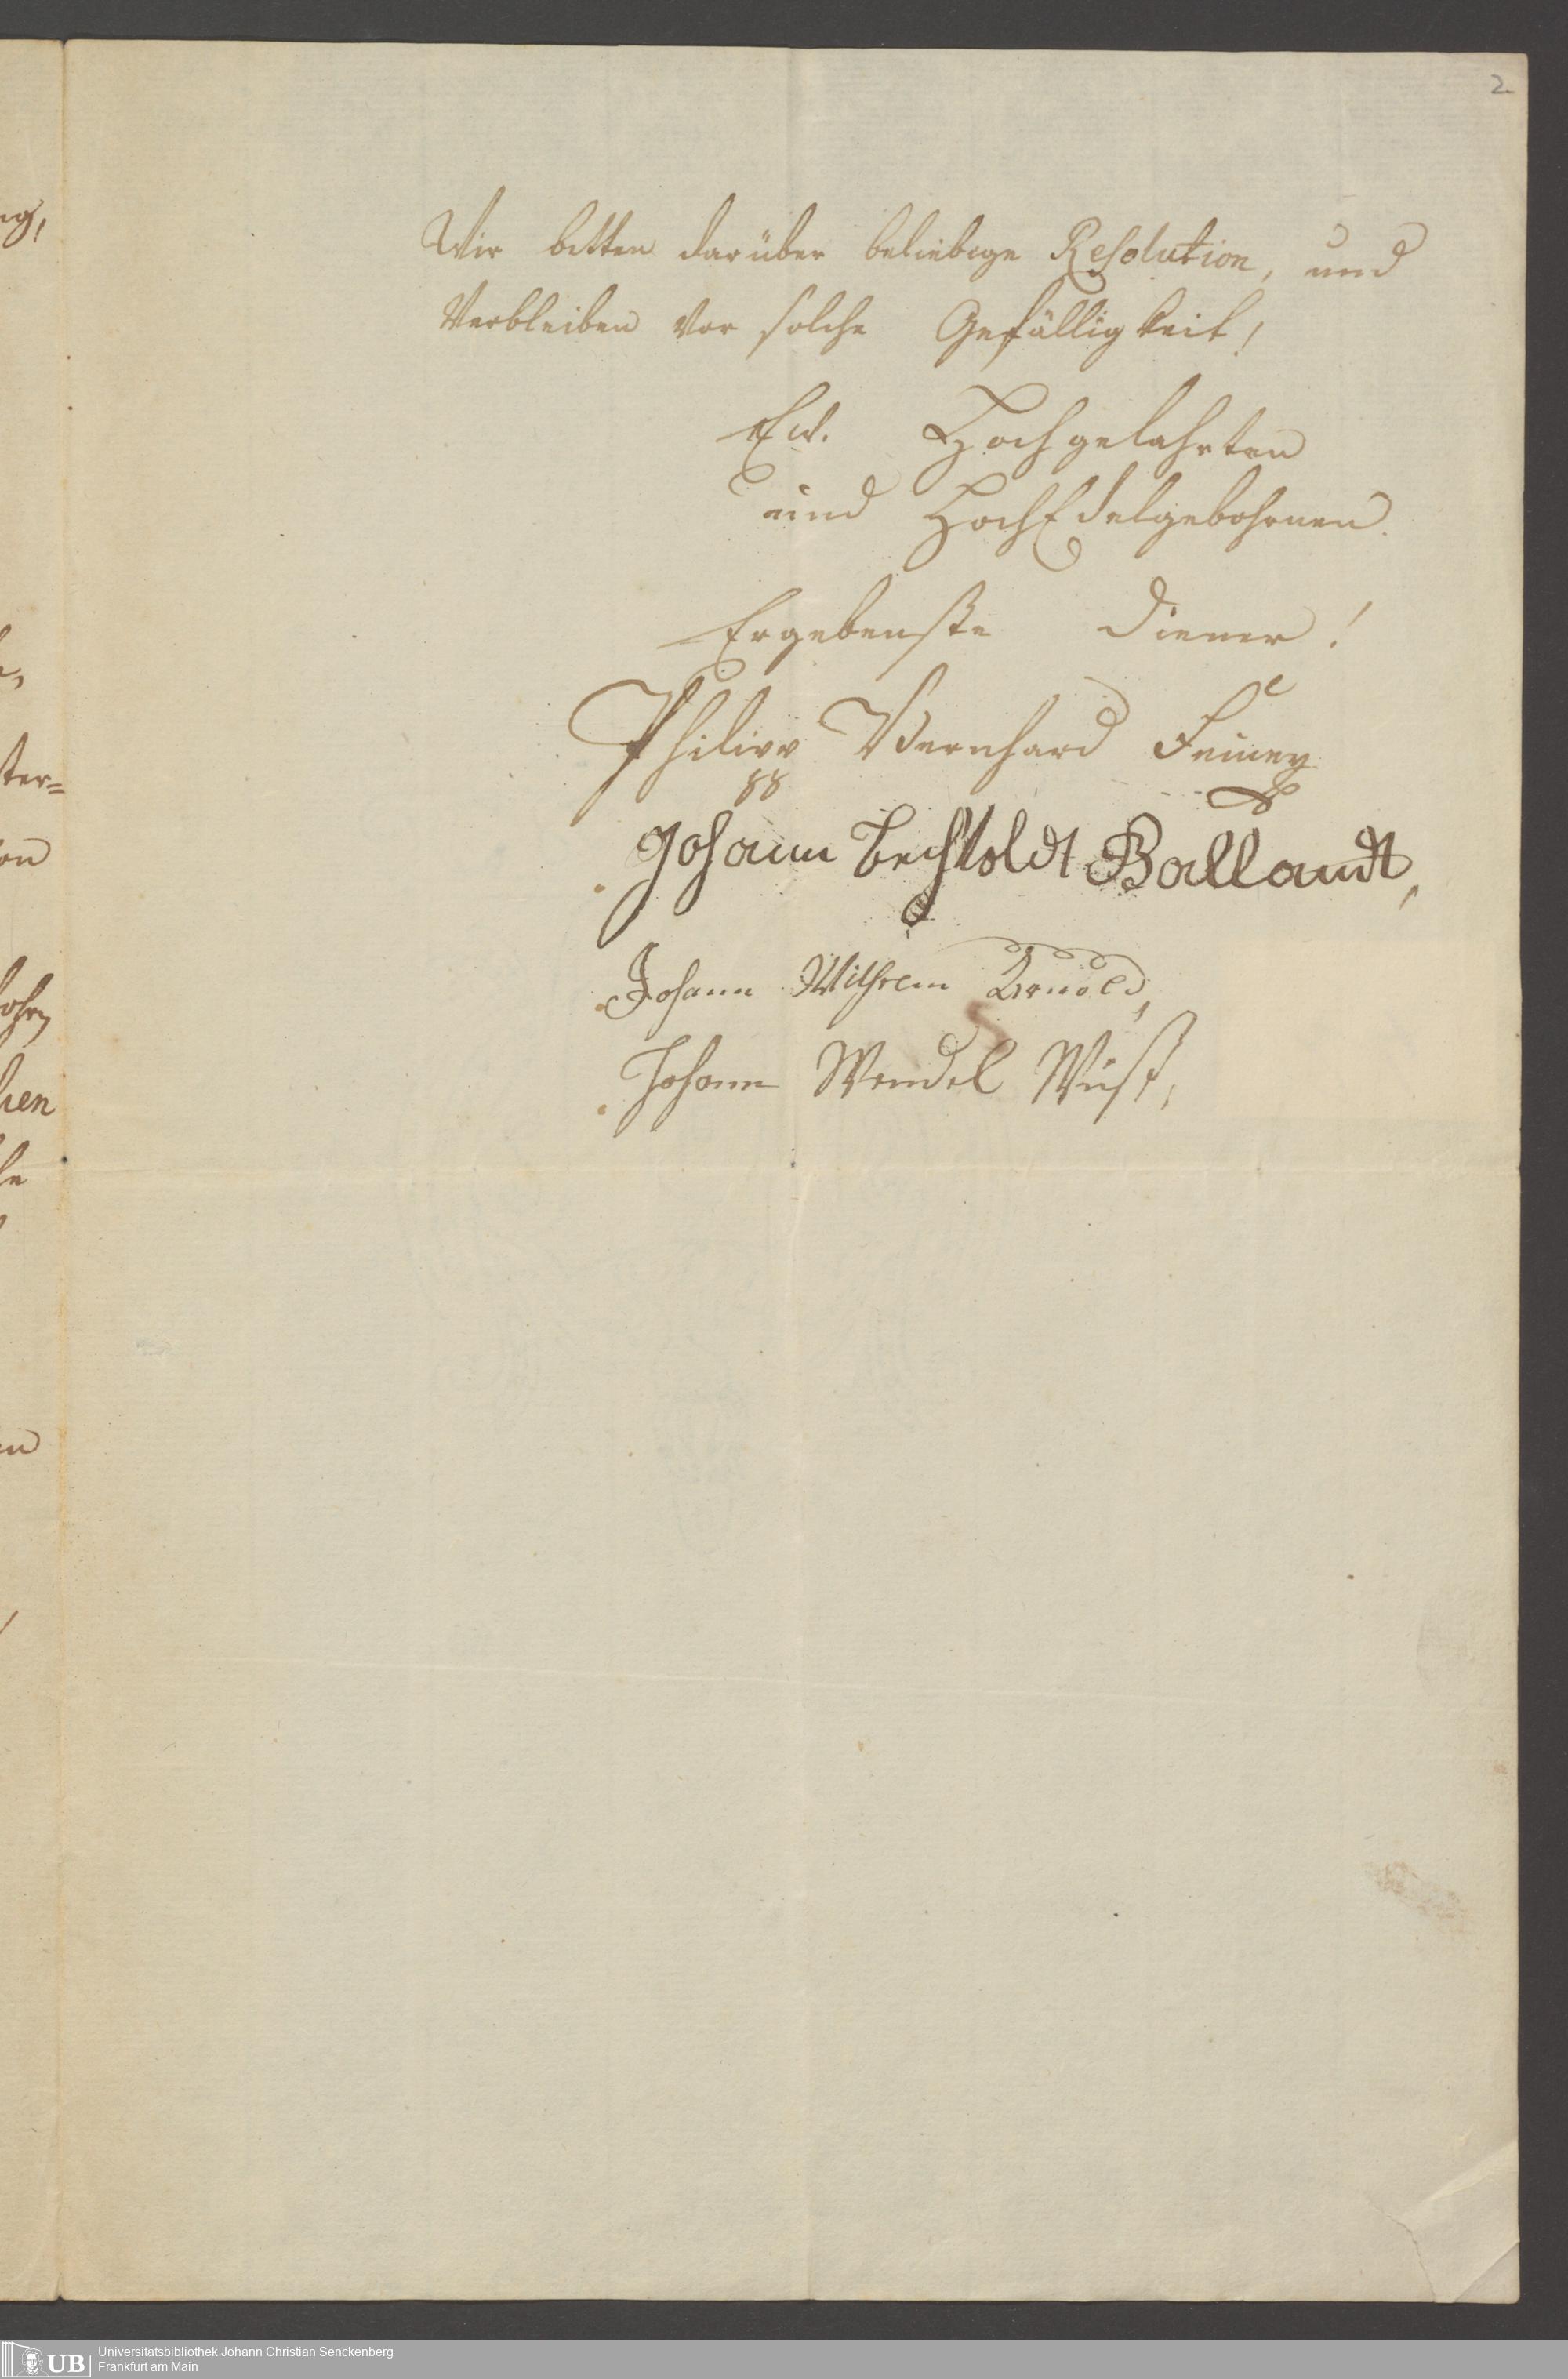 2
Wir bitten darüber beliebige Resolution, und
Verbleiben vor solche Gefälligkeit!
Ew. Hochgelahrten
und HochEdelgebohrnen.
Ergebenste Diener!
Philipp Bernhard
Johann Bechtoldt Ballandt,
Johann Wilhelm Arnold,
Johann Wendel Wüst,
UB Universitätsbibliothek Johann Christian Senckenberg
Frankfurt am Main